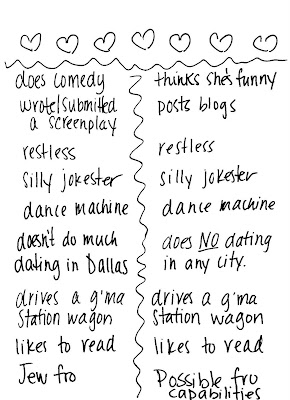 does comedy
wrote/submitted
a screenplay
restless
silly jokester
dance machine
doesn't do much
dating in Dallas
drives a g'ma
station wagon
likes to read
Jew fro
thinks she's funny
posts blogs
restless
silly jokester
dance machine
does NO dating
in any city.
drives a g'ma
station wagon
likes to read
Possible fro
capabilities